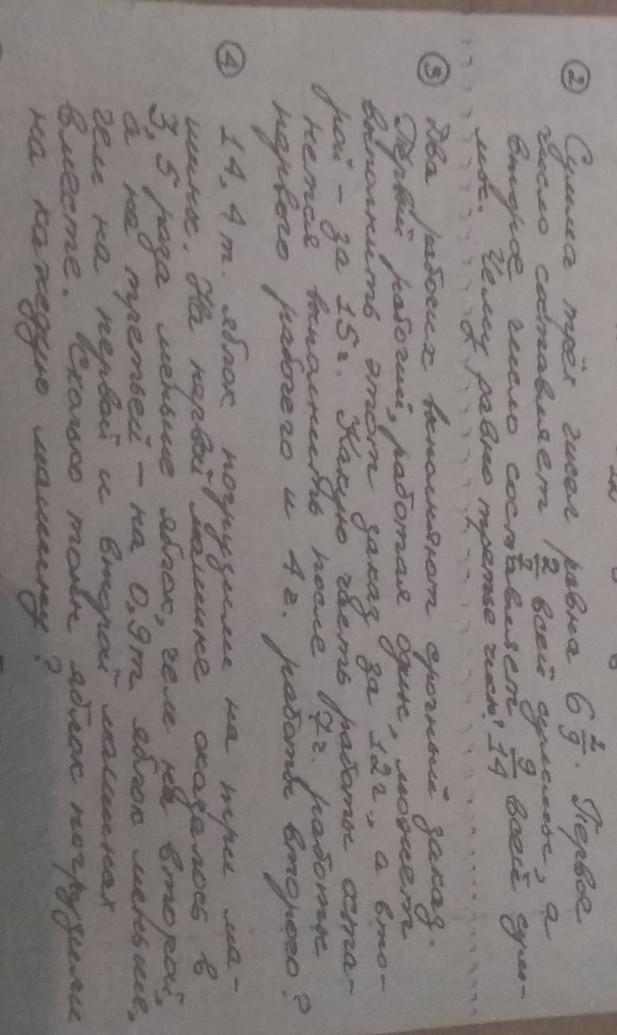 ② Сумма трёх чисел равна 6 2/9. Первое
число составляет 2/7 всей суммы, а
второе число составляет 9/14 всей сум-
мы. Чему равно третье число?
③ Два рабочих выполняют срочный заказ.
Первый рабочий, работая один, может
выполнить этот заказ за 12 ч, а вто-
рой - за 15 ч. Какую часть работы оста-
нется выполнить после 7 ч. работы
первого рабочего и 4 ч. работы второго?
④ 14,4 т. яблок погрузили на три ма-
шины. На первой машине оказалось в
3,5 раза меньше яблок, чем на второй,
а на третьей - на 0,9 т яблок меньше,
чем на первой и второй машинах
вместе. Сколько тонн яблок погрузили
на каждую машину?